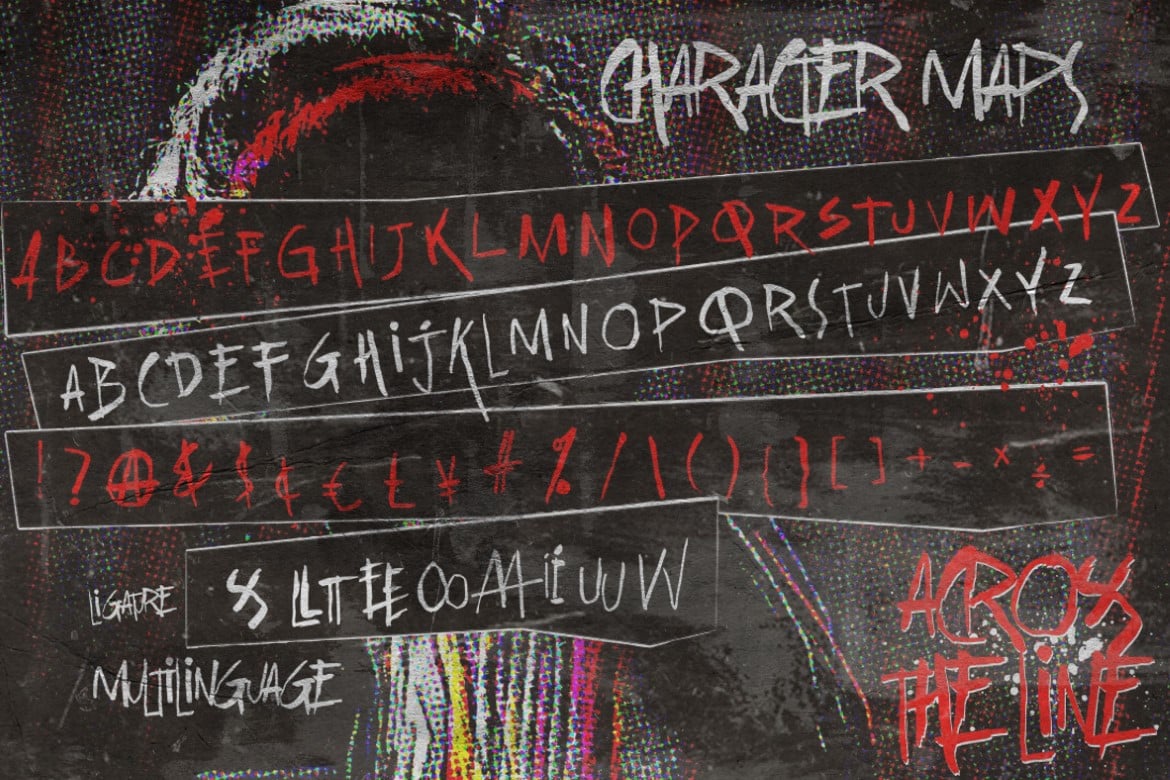 CHARACTER MAPS
A B C D E F G H I J K L M N O P Q R S T U V W X Y Z
A B C D E F G H i j K L M N O P Q R S T U V W X Y Z
! ? @ & $ ¢ € £ ¥ # % / | \ ( ) { } [ ] + - × ÷ =
LiGATURE
SS LL TT EE OO AA ii UU VV
MULTiLiNGUAGE
ACROSS
THE LiNE